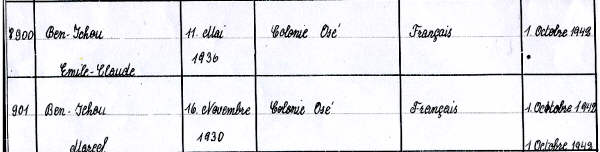 7900 Ben-Ichou 11. Mai Colonie Osé Français 1. Octobre 1942
Emile-Claude 1936
901 Ben-Ichou 16. Novembre Colonie Osé Français 1. Octobre 1942
Marcel 1930 1 Octobre 1942